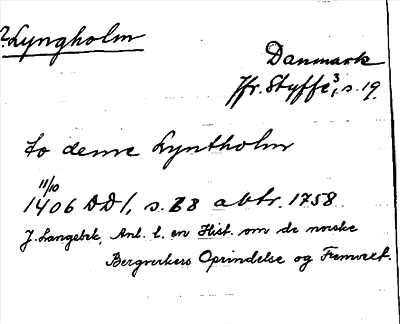 ? Lyngholm
Danmark
Jfr. Styffe³, s. 19.
to deme Lyntholm
11/10
1406 DD 1, s. 28 abtr. 1758
J. Langebek, Anl. t. en Hist. om de norske
Bergverkers Oprindelse og Fremvext.